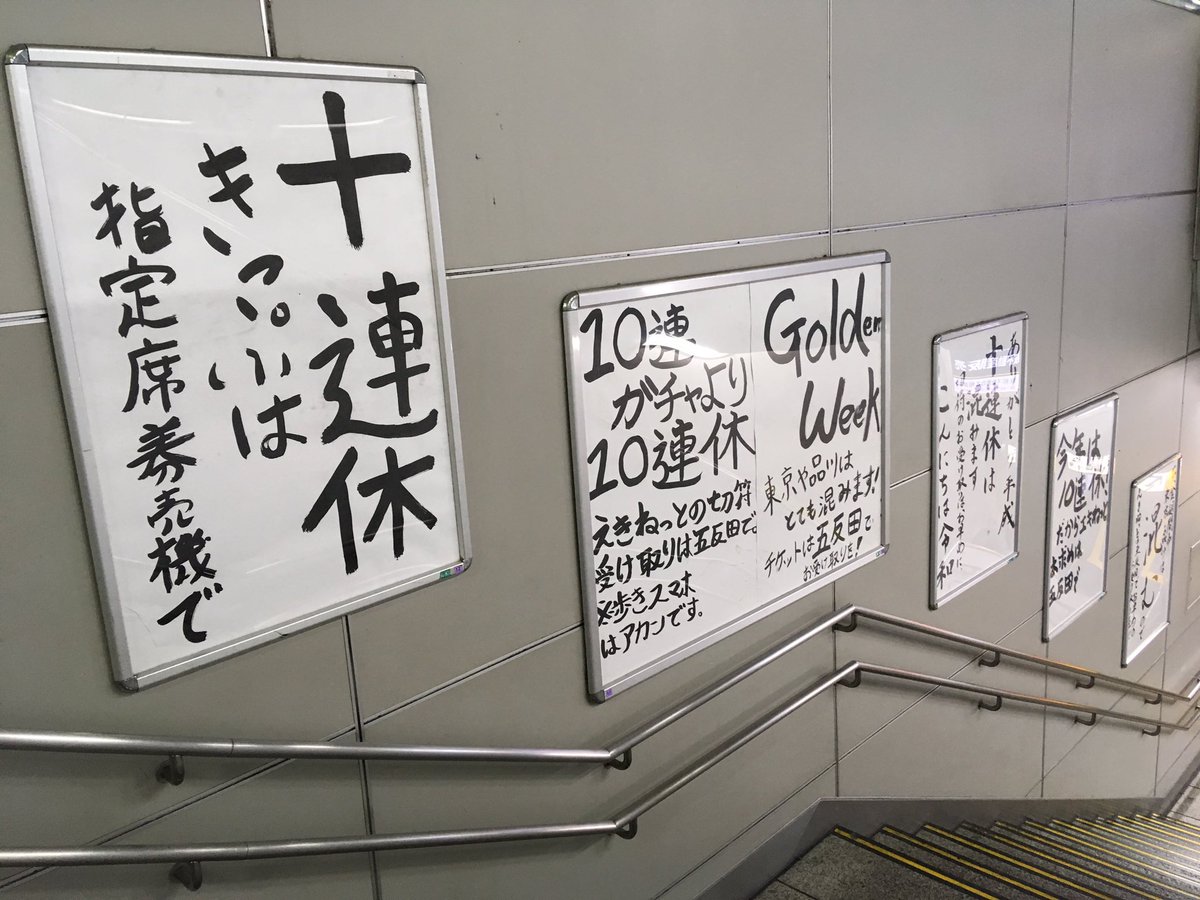 十連休
きっぷは
指定席券売機で
10連
ガチャより
10連休
えきねっとの切符
受け取りは五反田で。
※歩きスマホ
はアカンです。
Golden
Week
東京や品川は
とても混みます!
チケットは五反田で
お受け取りを!
ありがとう平成
十連休は
混みます
切符のお受け取りはお早めに
こんにちは令和
今年は
10連休
だからえきねっと
お求めは
五反田で